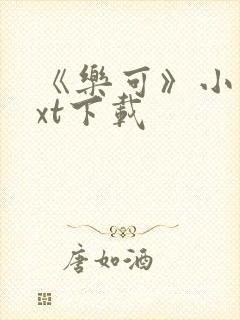 《樂可》小
xt下載
唐如酒